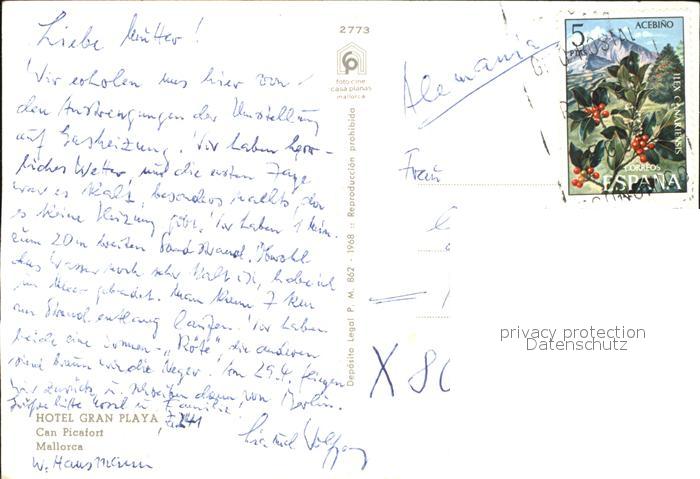 Liebe Mutter!
Wir erholen uns hier von
den Anstrengungen der Umstellung
auf Gasheizung. Wir haben herr-
liches Wetter, nur die ersten Tage
war es kalt, besonders nachts, da
es keine Heizung gibt. Wir haben 1 Min.
zum 20 m breiten Sandstrand. Obwohl
das Wasser noch sehr kalt ist, habe ich
im Meer gebadet. Man kann 7 km
am Strand entlang laufen. Wir haben
beide eine Sonnen-"Röte", die anderen
sind braun wie die Neger. Am 29.4. fliegen
wir zurück u. schreiben dann von Berlin.
Familie!
Wolfgang
HOTEL GRAN PLAYA
Can Picafort
Mallorca
W. Hausmann
2773
foto cine
casa planas
mallorca
Depósito Legal P. M. 862 - 1968 :: Reproducción prohibida
Alemania
Frau
X 80
5
ACEBIÑO
ILEX CANARIENSIS
CORREOS
ESPAÑA
privacy protection
Datenschutz